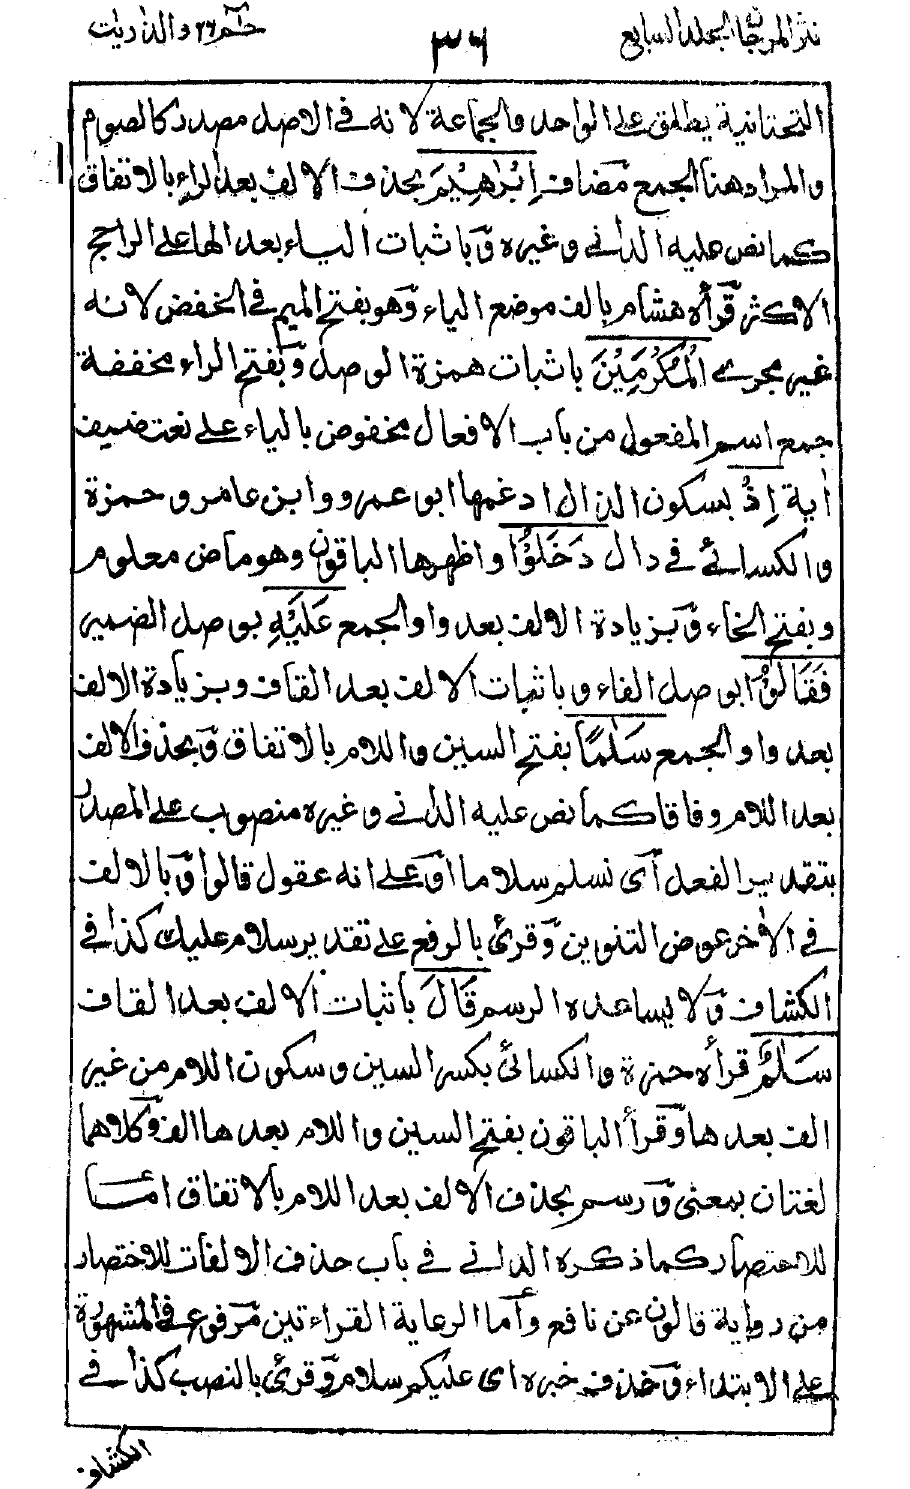 نثر المرجان المجلد السابع
٣٦
حم ٢٦ والذاريات
التحتانية يطلق على الواحد والجماعة لانه في الاصل مصدر كالصوم
والمراد هنا الجمع مضاف اِبْرٰهِيْمَ بحذف الالف بعد الراء بالاتفاق
كما نص عليه الداني وغيره وباثبات الياء بعد الهاء على الراجح
الاكثر قرأه هشام بالف موضع الياء وهو بفتح الميم في الخفض لانه
غير مجرى الْمُكْرَمِيْنَ باثبات همزة الوصل وبفتح الراء مخففة
جمع اسم المفعول من باب الافعال مخفوض بالياء على نعت ضيف
اٰية اِذْ بسكون الذال ادغمها ابو عمرو وابن عامر وحمزة
والكسائي في دال دَخَلُوْا واظهرها الباقون وهو ماض معلوم
وبفتح الخاء وبزيادة الالف بعد واو الجمع عَلَيْهِ بوصل الضمير
فَقَالُوْا بوصل الفاء وباثبات الالف بعد القاف وبزيادة الالف
بعد واو الجمع سَلٰمًا بفتح السين واللام بالاتفاق وبحذف الالف
بعد اللام وفاقا كما نص عليه الداني وغيره منصوب على المصدر
بتقدير الفعل اى نسلم سلاما او على انه مقول قالوا وبالالف
في الاٰخر عوض التنوين وقرئ بالرفع على تقدير سلام عليك كذا في
الكشاف ولا يساعده الرسم قَالَ باثبات الالف بعد القاف
سَلٰمٌ قرأه حمزة والكسائي بكسر السين وسكون اللام من غير
الف بعدها وقرأ الباقون بفتح السين واللام بعدها الف وكلاهما
لغتان بمعنى ورسم بحذف الالف بعد اللام بالاتفاق اما
للاختصار كما ذكره الداني في باب حذف الالفات للاختصار
من رواية قالون عن نافع واما لرعاية القراءتين مرفوع في المشهورة
على الابتداء وحذف خبره اى عليكم سلام وقرئ بالنصب كذا في
الكشاف